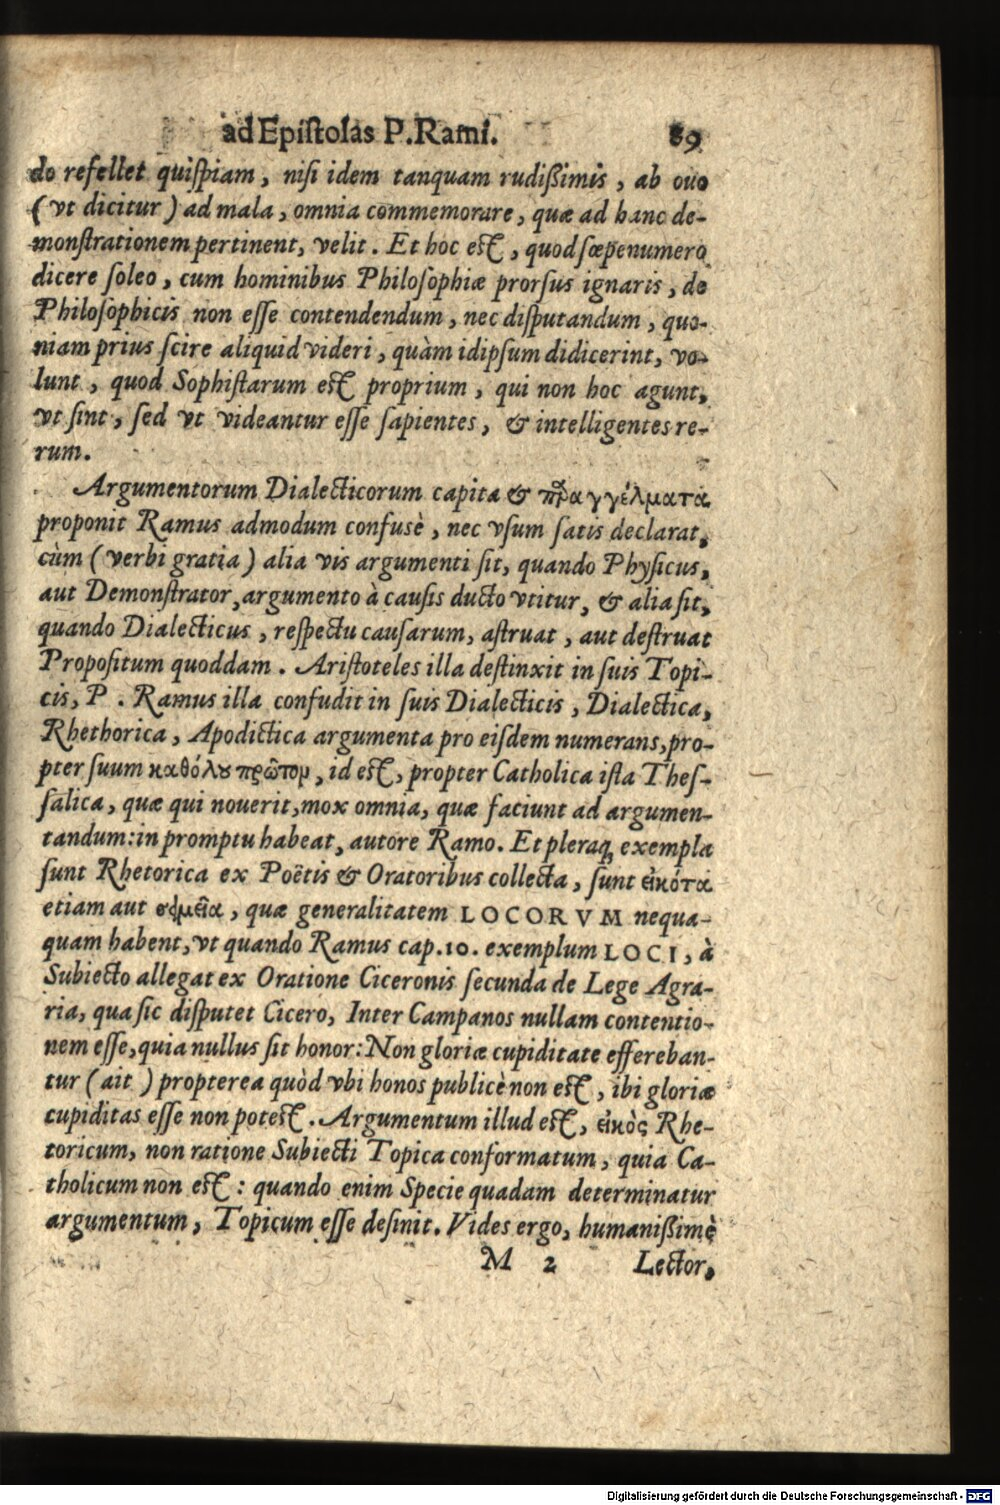 ad Epiſtolas P. Rami. 89
do refellet quiſpiam, niſi idem tanquam rudißimis, ab ouo
(vt dicitur) ad mala, omnia commemorare, quæ ad hanc de-
monſtrationem pertinent, velit. Et hoc eſt, quod ſæpenumero
dicere ſoleo, cum hominibus Philoſophiæ prorſus ignaris, de
Philoſophicis non eſſe contendendum, nec diſputandum, quo-
niam prius ſcire aliquid videri, quàm idipſum didicerint, vo-
lunt, quod Sophiſtarum eſt proprium, qui non hoc agunt,
vt ſint, ſed vt videantur eſſe ſapientes, & intelligentes re-
rum.
Argumentorum Dialecticorum capita & πραγγέλματα
proponit Ramus admodum confusè, nec vſum ſatis declarat,
cùm (verbi gratia) alia vis argumenti ſit, quando Phyſicus,
aut Demonſtrator, argumento à cauſis ducto vtitur, & alia ſit,
quando Dialecticus, reſpectu cauſarum, aſtruat, aut deſtruat
Propoſitum quoddam. Ariſtoteles illa deſtinxit in ſuis Topi-
cis, P. Ramus illa confudit in ſuis Dialecticis, Dialectica,
Rhethorica, Apodictica argumenta pro eiſdem numerans, pro-
pter ſuum καθόλου πρῶτον, id eſt, propter Catholica iſta Theſ-
ſalica, quæ qui nouerit, mox omnia, quæ faciunt ad argumen-
tandum: in promptu habeat, autore Ramo. Et pleraq, exempla
ſunt Rhetorica ex Poëtis & Oratoribus collecta, ſunt εἰκότα
etiam aut σημεῖα, quæ generalitatem LOCORVM nequa-
quam habent, vt quando Ramus cap. 10. exemplum LOCI, à
Subiecto allegat ex Oratione Ciceronis ſecunda de Lege Agra-
ria, qua ſic diſputet Cicero, Inter Campanos nullam contentio-
nem eſſe, quia nullus ſit honor: Non gloriæ cupiditate effereban-
tur (ait) propterea quòd vbi honos publicè non eſt, ibi gloriæ
cupiditas eſſe non poteſt. Argumentum illud eſt, εἰκὸς Rhe-
toricum, non ratione Subiecti Topica conformatum, quia Ca-
tholicum non eſt: quando enim Specie quadam determinatur
argumentum, Topicum eſſe deſinit. Vides ergo, humanißimè
M 2 Lector,
Digitalisierung gefördert durch die Deutsche Forschungsgemeinschaft - DFG